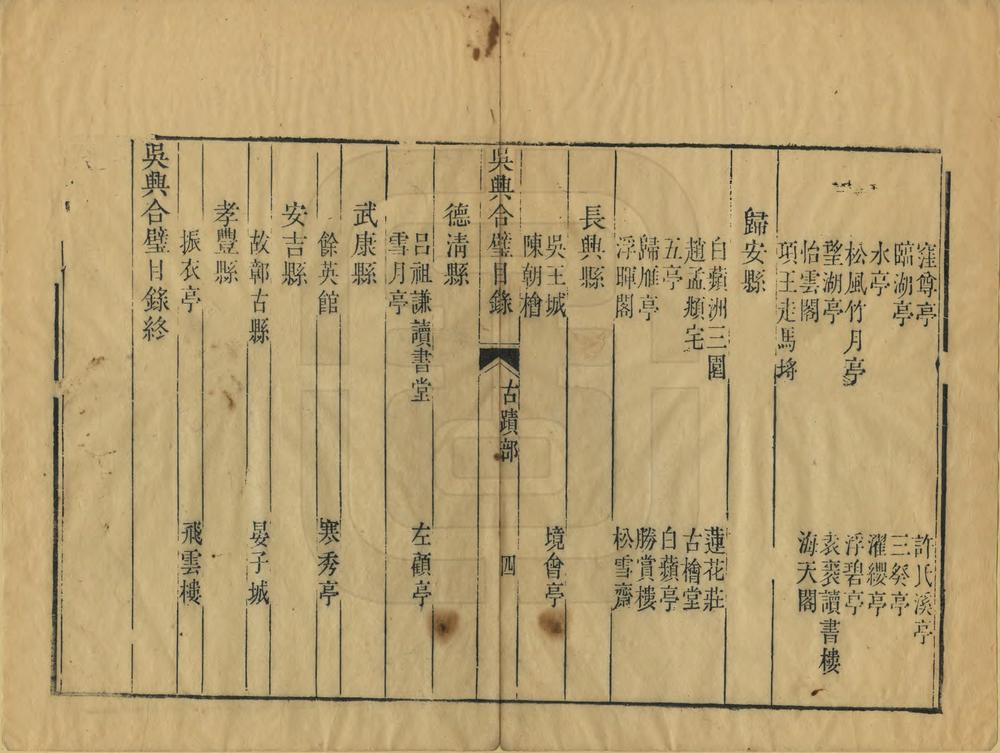 窪尊亭　許氏溪亭
臨湖亭　三癸亭
水亭　濯纓亭
松風竹月亭　浮碧亭
墼湖亭　袁裴讀書樓
怡雲閣　海天閣
項王走馬埓
歸安縣
白蘋洲三園　蓮花莊
趙孟頫宅　古檜堂
五亭　白蘋亭
歸雁亭　勝賞樓
浮暉閣　松雪齋
長興縣
吳王城　境會亭
陳朝檜
吳興合璧目錄　古蹟部　四
德清縣
呂祖謙讀書堂　左顧亭
雪月亭
武康縣
餘英館　寒秀亭
安吉縣
故鄣古縣　晏子城
孝豐縣
振衣亭　飛雲樓
吳興合璧目錄終